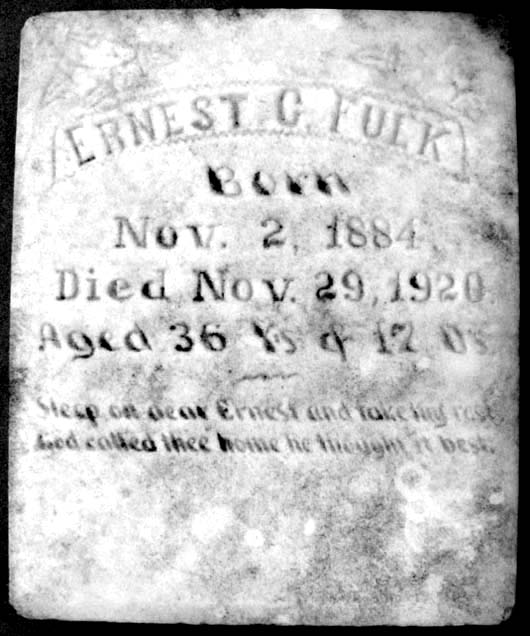 ERNEST C. FULK
Born
Nov. 2, 1884.
Died Nov. 29, 1920.
Aged 36 Ys & 17 Ds
Sleep on dear Ernest and take thy rest
God called thee home he thought it best.